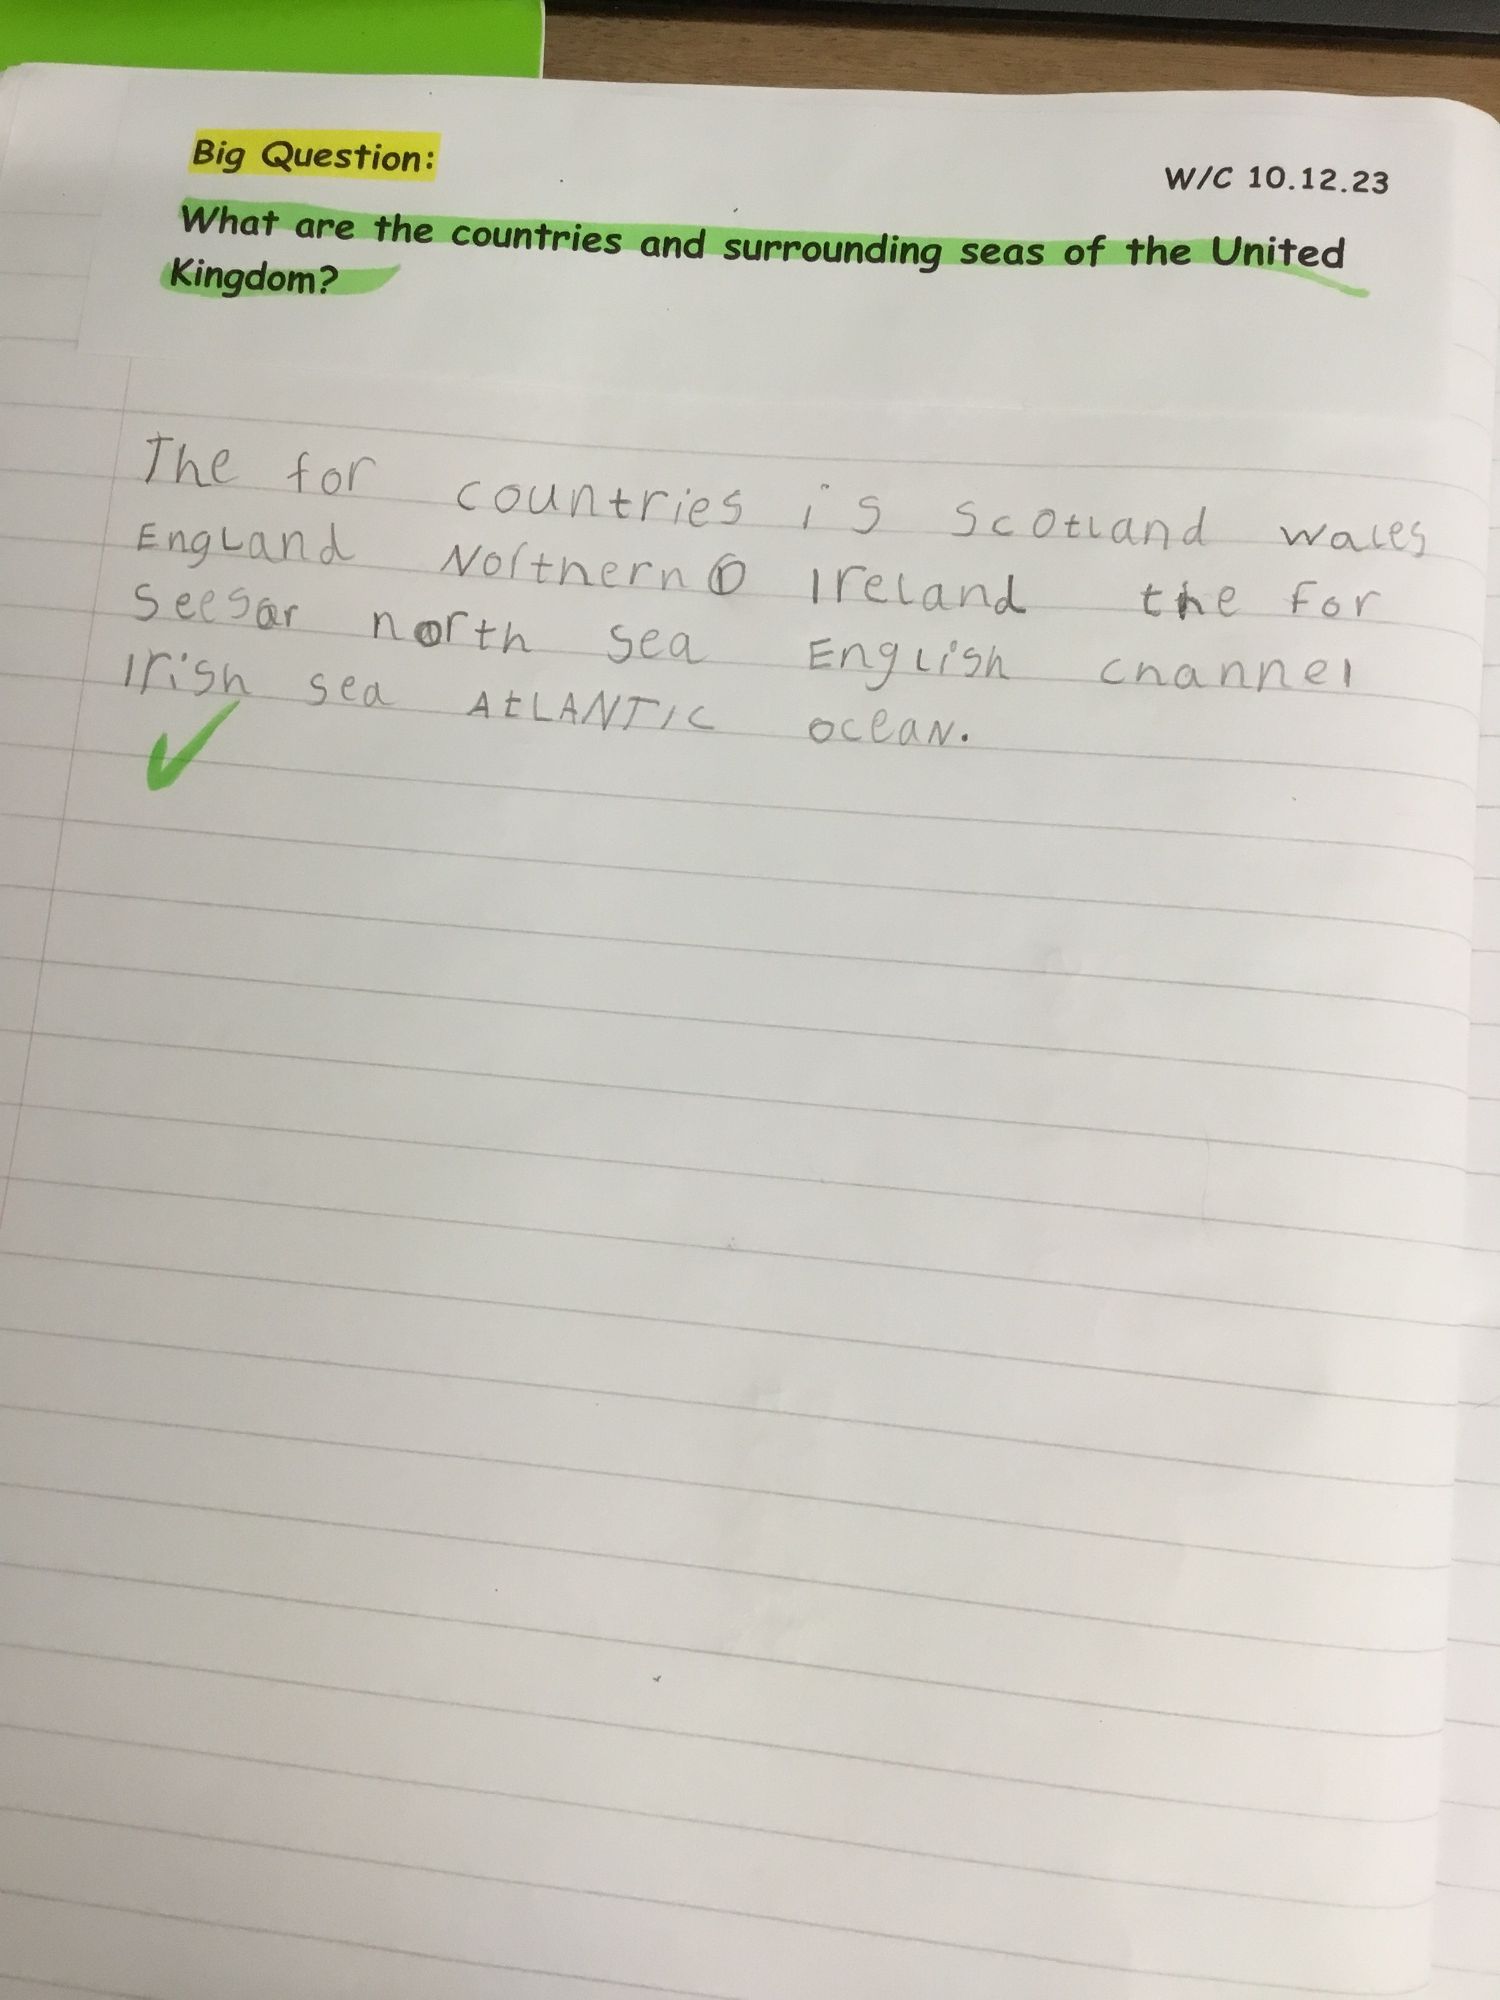 Big Question:
W/C 10.12.23
What are the countries and surrounding seas of the United
Kingdom?
The for countries is scotland wales
England Northern Ireland the for
Seesar north sea English channel
Irish sea AtLANTIC oceaN.